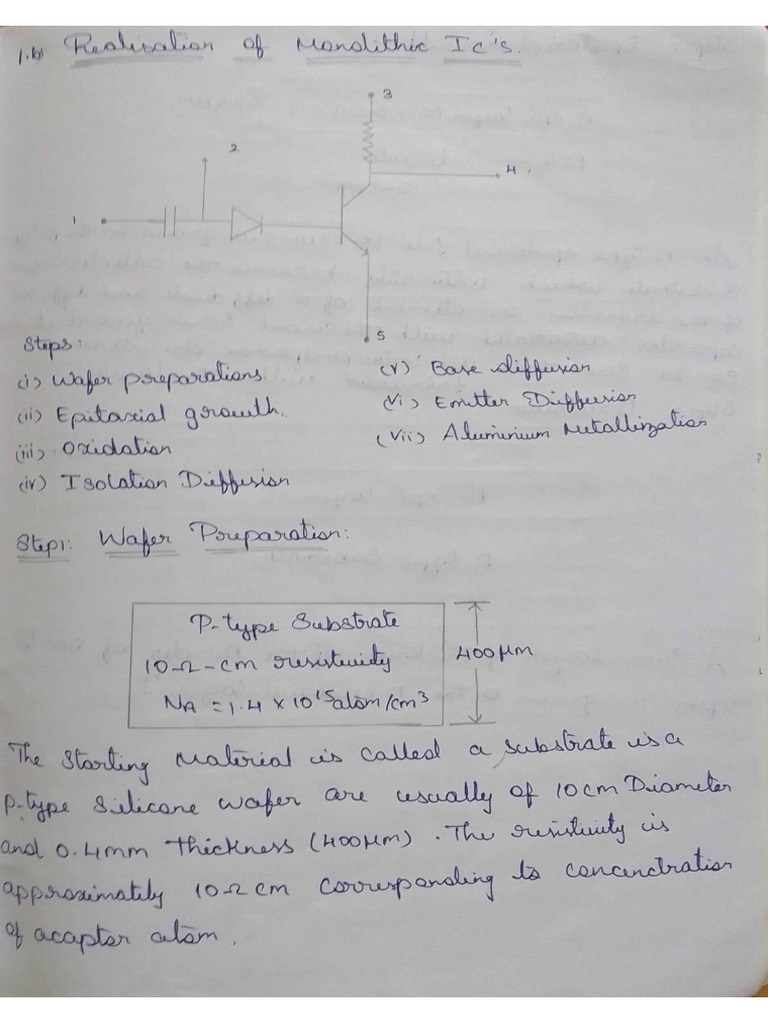 1.b) Realisation of Monolithic IC's.
3
2
4
1
5
Steps:
(i) Wafer preparations.
(ii) Epitaxial growth.
(iii) Oxidation
(iv) Isolation Diffusion
(v) Base diffusion
(vi) Emitter Diffusion
(vii) Aluminium Metallization
Step1: Wafer Preparation:
P-type Substrate
10-Ω-cm resistivity
NA = 1.4 × 10^15 atom/cm^3
400μm
The Starting Material is called a substrate is a
P-type Silicone wafer are usually of 10cm Diameter
and 0.4mm thickness (400μm). The resistivity is
approximately 10Ω cm corresponding to concenctration
of acaptor atom.